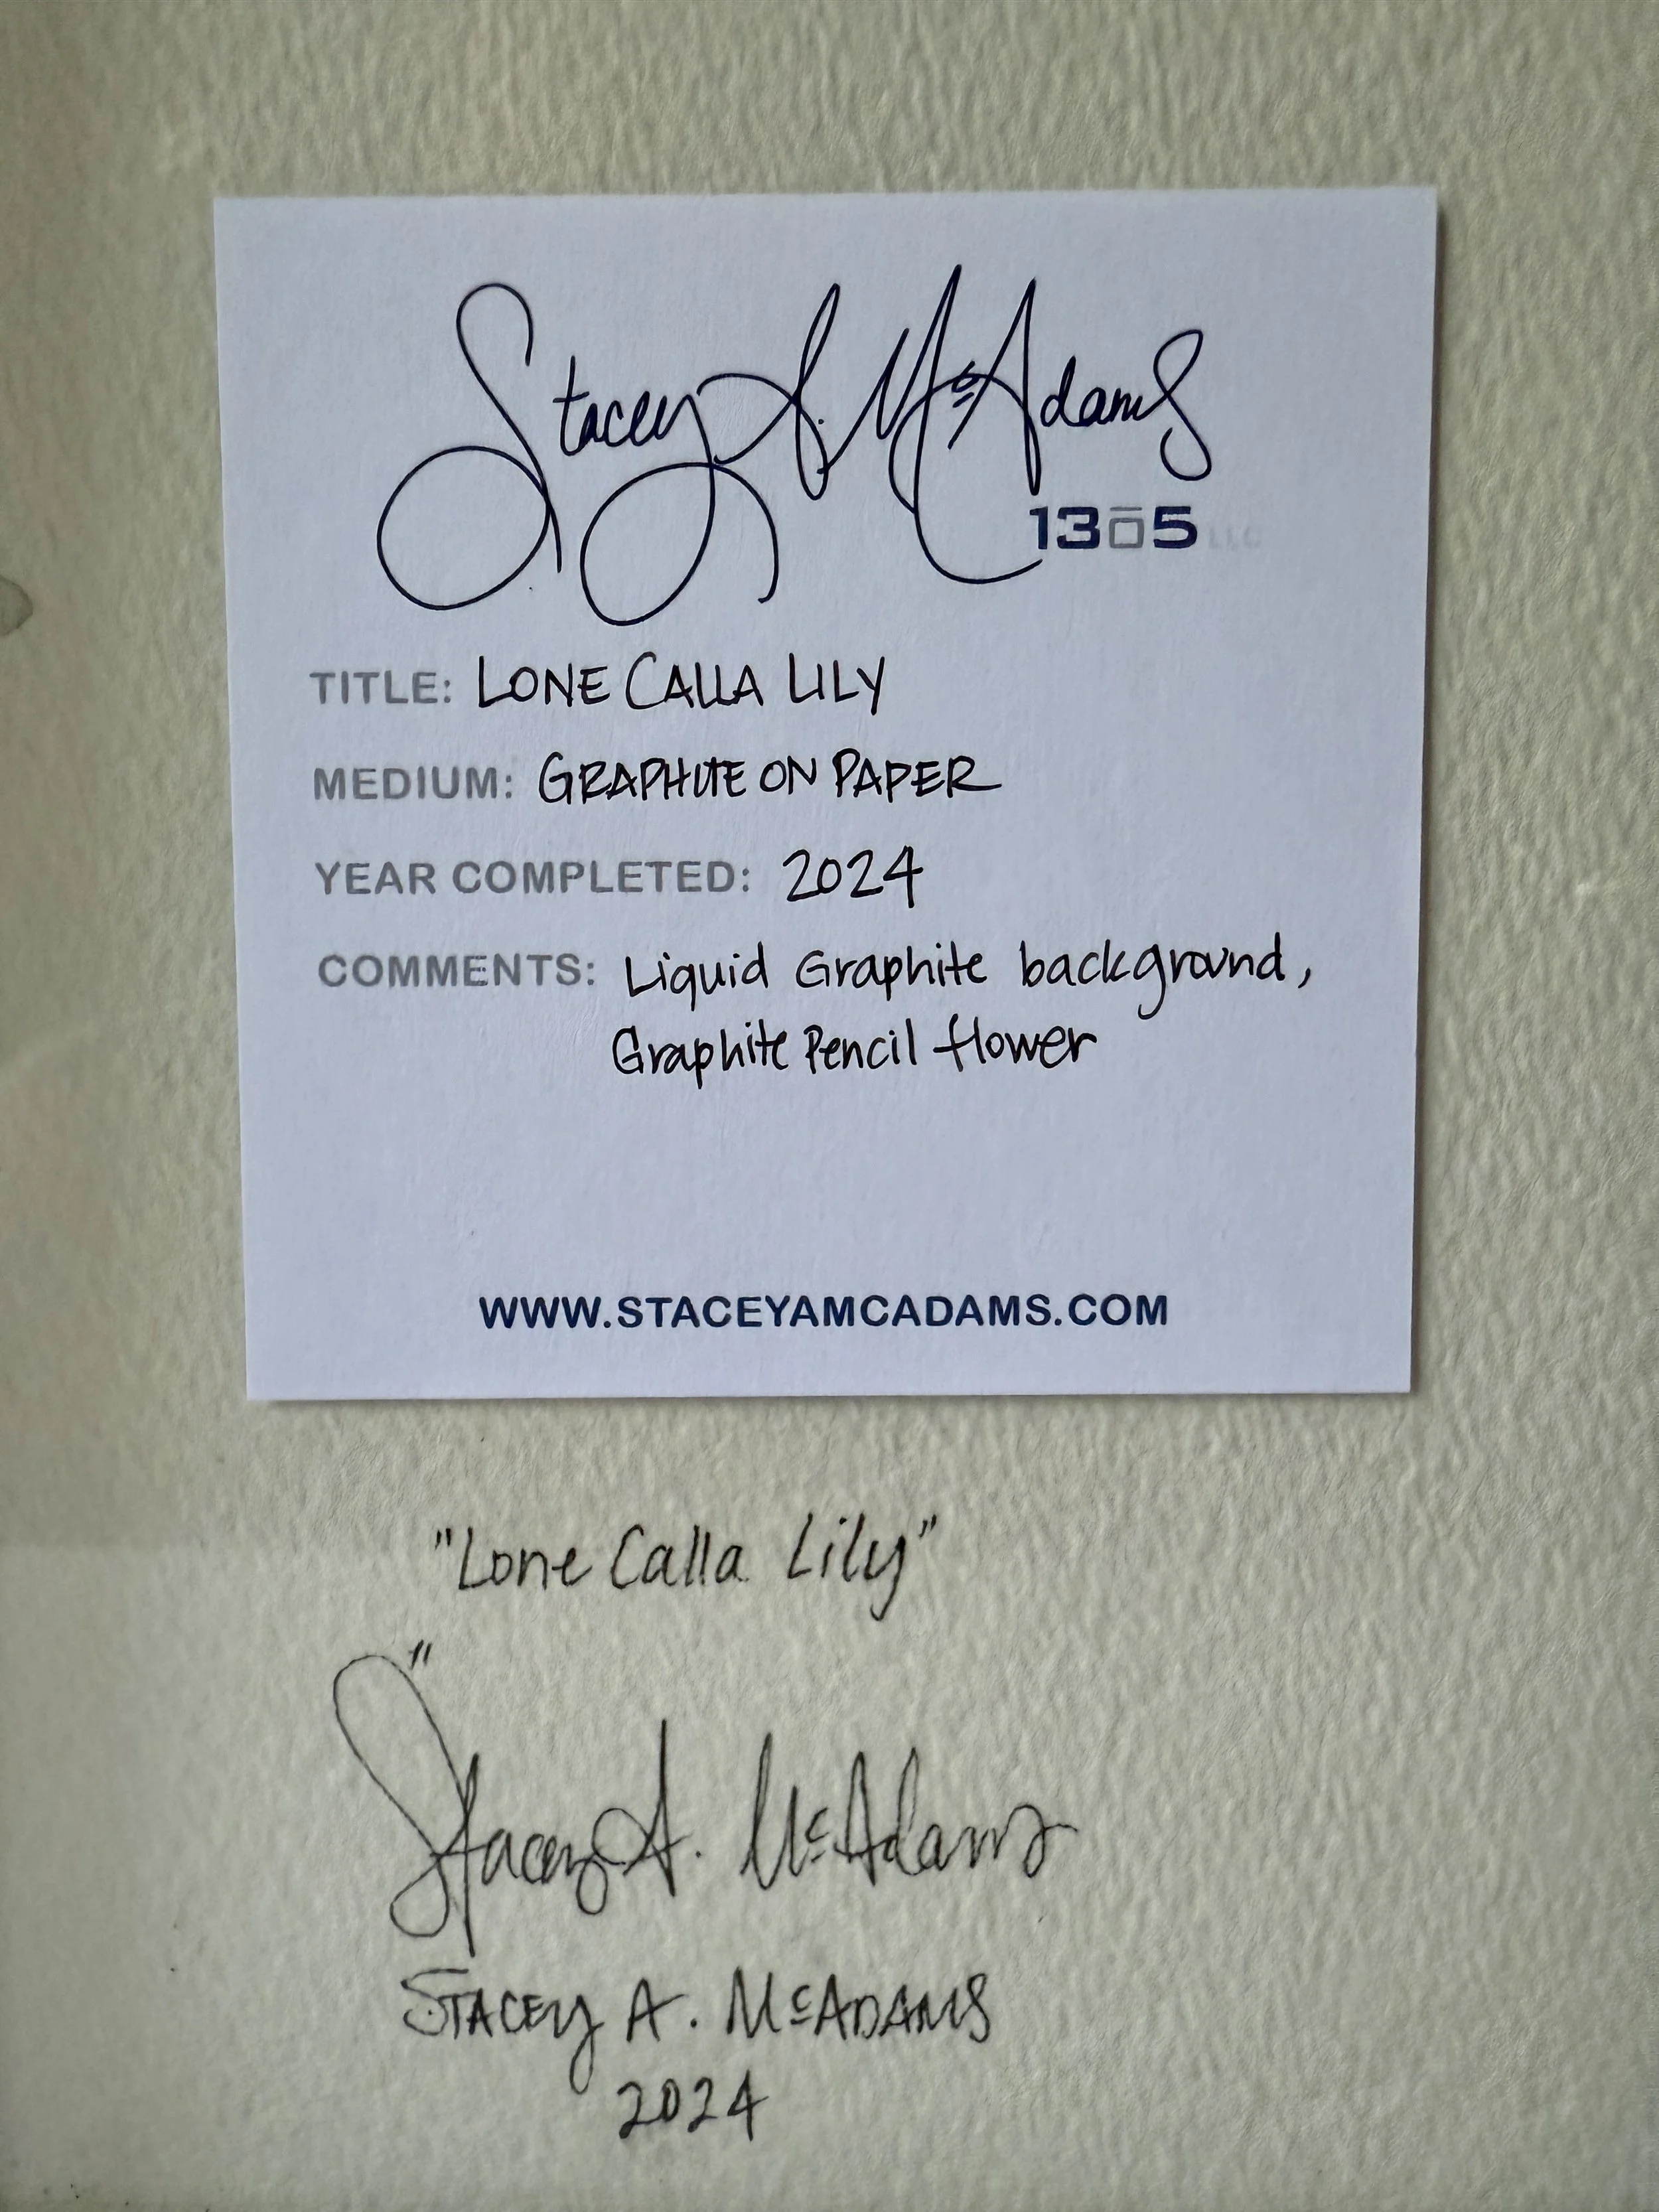 Stacey A. McAdams
13ō5 LLC
TITLE: LONE CALLA LILY
MEDIUM: GRAPHITE ON PAPER
YEAR COMPLETED: 2024
COMMENTS: Liquid Graphite background,
Graphite Pencil flower
WWW.STACEYAMCADAMS.COM
"Lone Calla Lily"
Stacey A. McAdams
STACEY A. McADAMS
2024